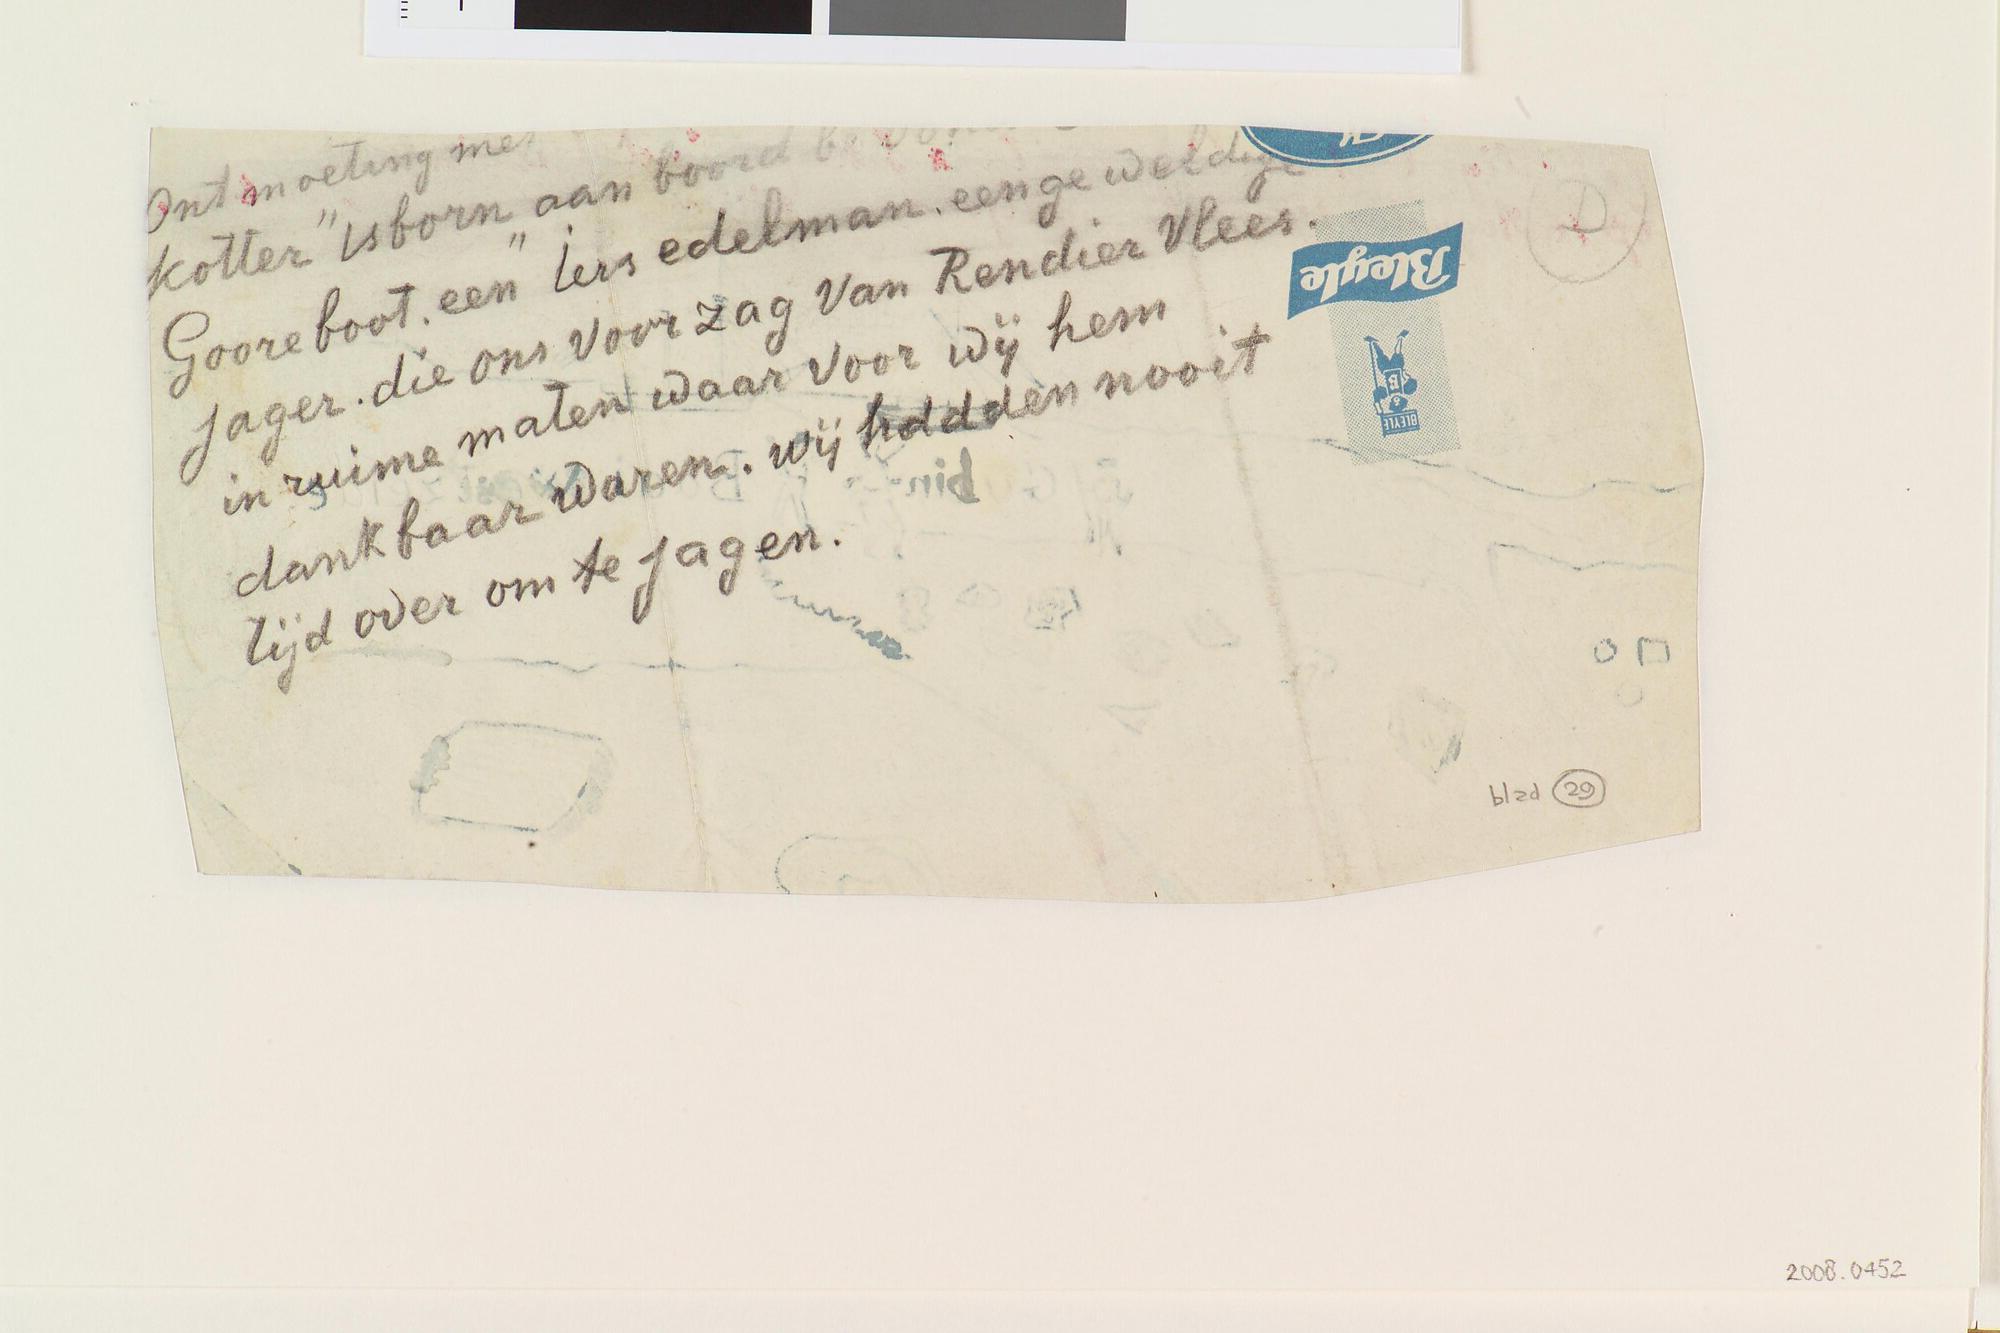 Ontmoeting met
kotter "isborn aan boord
Goore boot. een" iers edelman. een geweldige
jager. die ons voor zag van Rendier vlees.
in ruime maten waar voor wij hem
dankbaar waren. wij hadden nooit
tijd over om te jagen.
D
Bleyle
B
BLEYLE
bin-
blad 29
2008.0452